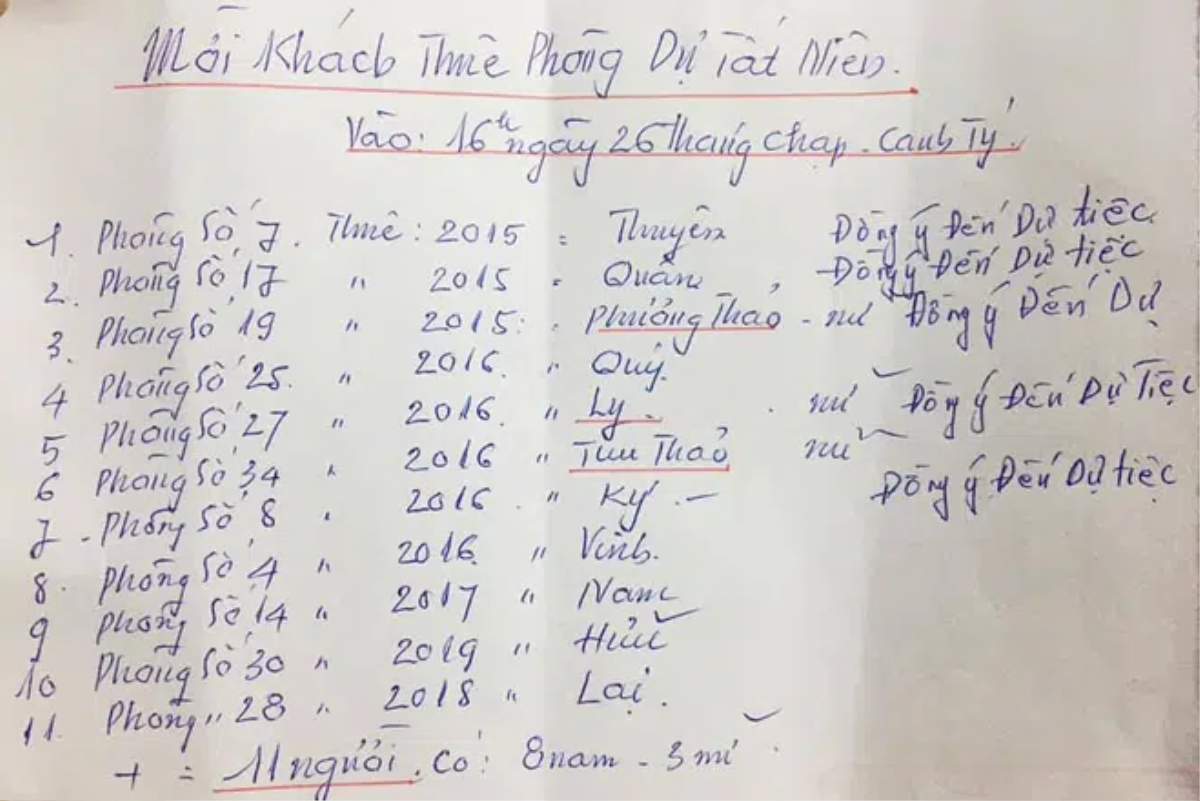 Mời Khách Thuê Phòng Dự Tất Niên.
Vào: 16h ngày 26 Tháng Chạp. Canh Tý.
1. Phòng Số 7. Thuê: 2015 = Thuyên Đồng ý Đến Dự tiệc.
2. Phòng Số 17 " 2015 " Quân Đồng ý Đến Dự tiệc
3. Phòng Số 19 " 2015: " Phương Thảo - nữ Đồng ý Đến Dự
4 Phòng Số 25. " 2016. " Quý.
5 Phòng Số 27 " 2016. " Ly. nữ Đồng ý Đến Dự Tiệc
6 Phòng Số 34 " 2016 " Thu Thảo nữ
7 - Phòng Số 8 " 2016. " Ký. - Đồng ý Đến Dự tiệc
8. Phòng Số 4 " 2016. " Vinh.
9 Phòng Số 14 " 2017 " Nam
10 Phòng Số 30 " 2019 " Hữu
11. Phòng " 28 " 2018 " Lại.
+ = 11 người. Có: 8 nam - 3 nữ.